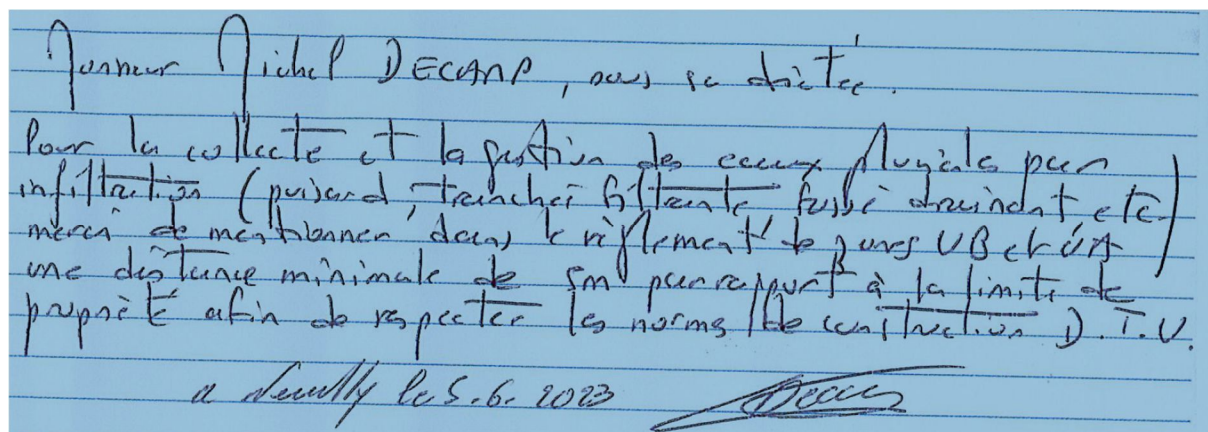 Monsieur Michel DECAMP, sous sa dictée.
Pour la collecte et la gestion des eaux pluviales par
infiltration (puisard, tranchée filtrante fossé drainant, etc)
merci de mentionner dans le règlement de zones UB et UA
une distance minimale de 5m par rapport à la limite de
propriété afin de respecter les normes de construction D.T.U.
a Neuilly le 5.6.2023 Decamp